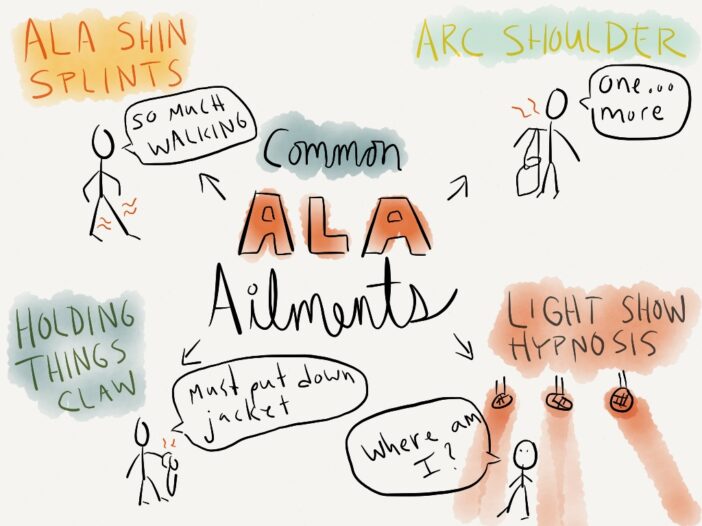 ALA SHIN
SPLINTS
SO MUCH
WALKING
ARC SHOULDER
one...
more
Common
ALA
Ailments
HOLDING
THINGS
CLAW
Must put down
jacket
LIGHT SHOW
HYPNOSIS
where am
I?